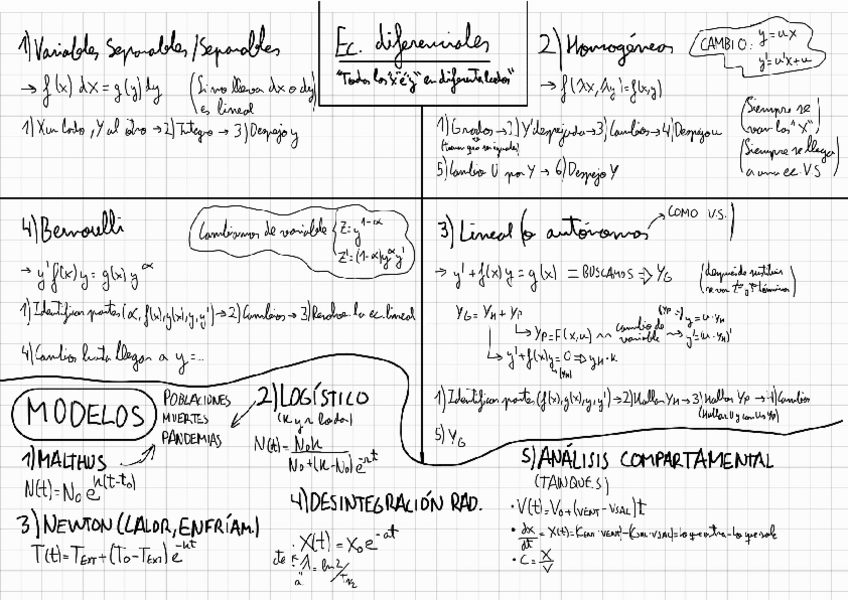 Ec. diferenciales
"Todas las "x" e "y" en diferentes lados"
1) Variables Separables / Separables
→ f(x) dx = g(y) dy (Si no lleva dx o dy es lineal)
1) X un lado, Y al otro → 2) Integro → 3) Despejo y
2) Homogéneas
CAMBIO: y = ux
y' = u'x + u
→ f(λx, λy) = f(x,y)
(Siempre se van los "x",)
(Siempre se llega a una ec. VS)
1) Grados → 2) Y' despejada → 3) Cambios → 4) Despejo u
5) Cambio U por Y → 6) Despejo Y
4) Bernoulli
Cambiamos de variable { z = y^{1-α}
z' = (1-α) y^α y'
→ y' f(x) y = g(x) y^α
1) Identificar partes (α, f(x), g(x), y, y') → 2) Cambios → 3) Resolver la ec. lineal
4) Cambios hasta llegar a y = ...
3) Lineal (o autónomas → COMO V.S.)
→ y' + f(x) y = g(x) = BUSCAMOS ⇒ Y_G
Y_G = Y_H + Y_P
→ Y_P = F(x, u) cambio de variable y = u · Y_H
y' = (u · Y_H)'
→ y' + f(x) y = 0 ⇒ Y_H · K
1) Identificar partes (f(x), g(x), y, y') → 2) Hallar Y_H → 3) Hallar Y_P → 4) Cambio
5) Y_G
MODELOS
POBLACIONES
MUERTES
PANDEMIAS
1) MALTHUS
N(t) = N₀ e^{k(t-t₀)}
2) LOGÍSTICO
(K y r los da)
N(t) = N₀K / N₀ + (K - N₀) e^{-rt}
3) NEWTON (CALOR, ENFRÍAM.)
T(t) = T_EXT + (T₀ - T_EXT) e^{-kt}
4) DESINTEGRACIÓN RAD.
· X(t) = X₀ e^{-at}
cte "a" λ = ln 2 / T_{1/2}
5) ANÁLISIS COMPARTAMENTAL
(TANQUES)
· V(t) = V₀ + (V_ENT - V_SAL) t
· dx/dt = X(t) = K_ENT · V_ENT - K_SAL · V_SAL = lo que entra - lo que sale
· C = X/V